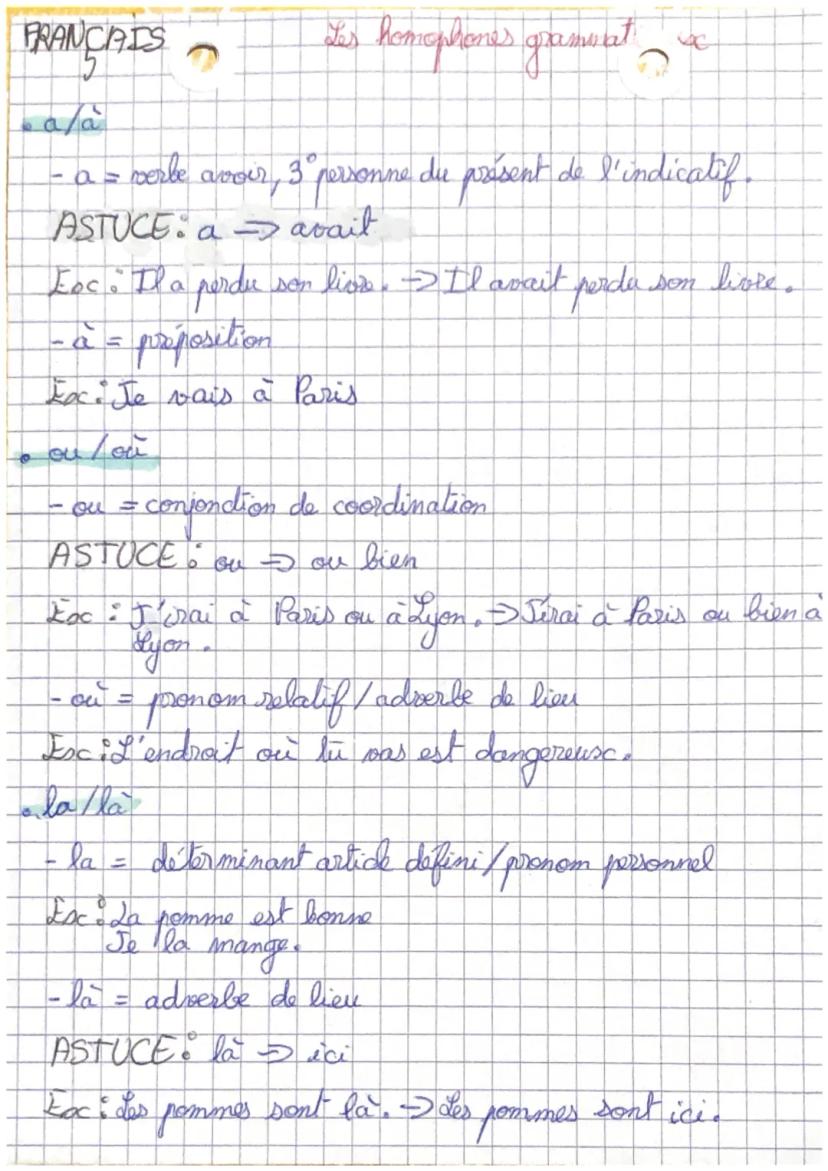 FRANÇAIS Les homophones grammat x
• a/à
- a = verbe avoir, 3° personne du présent de l'indicatif.
ASTUCE : a => avait
Ex : Il a perdu son livre. -> Il avait perdu son livre.
- à = préposition
Ex : Je vais à Paris
• ou / où
- ou = conjonction de coordination
ASTUCE : ou => ou bien
Ex : J'irai à Paris ou à Lyon. -> J'irai à Paris ou bien à
Lyon.
- où = pronom relatif / adverbe de lieu
Ex : L'endroit où tu vas est dangereux.
• la / là
- la = déterminant article défini / pronom personnel
Ex : La pomme est bonne
Je la mange.
- là = adverbe de lieu
ASTUCE : là => ici
Ex : Les pommes sont là. -> Les pommes sont ici.